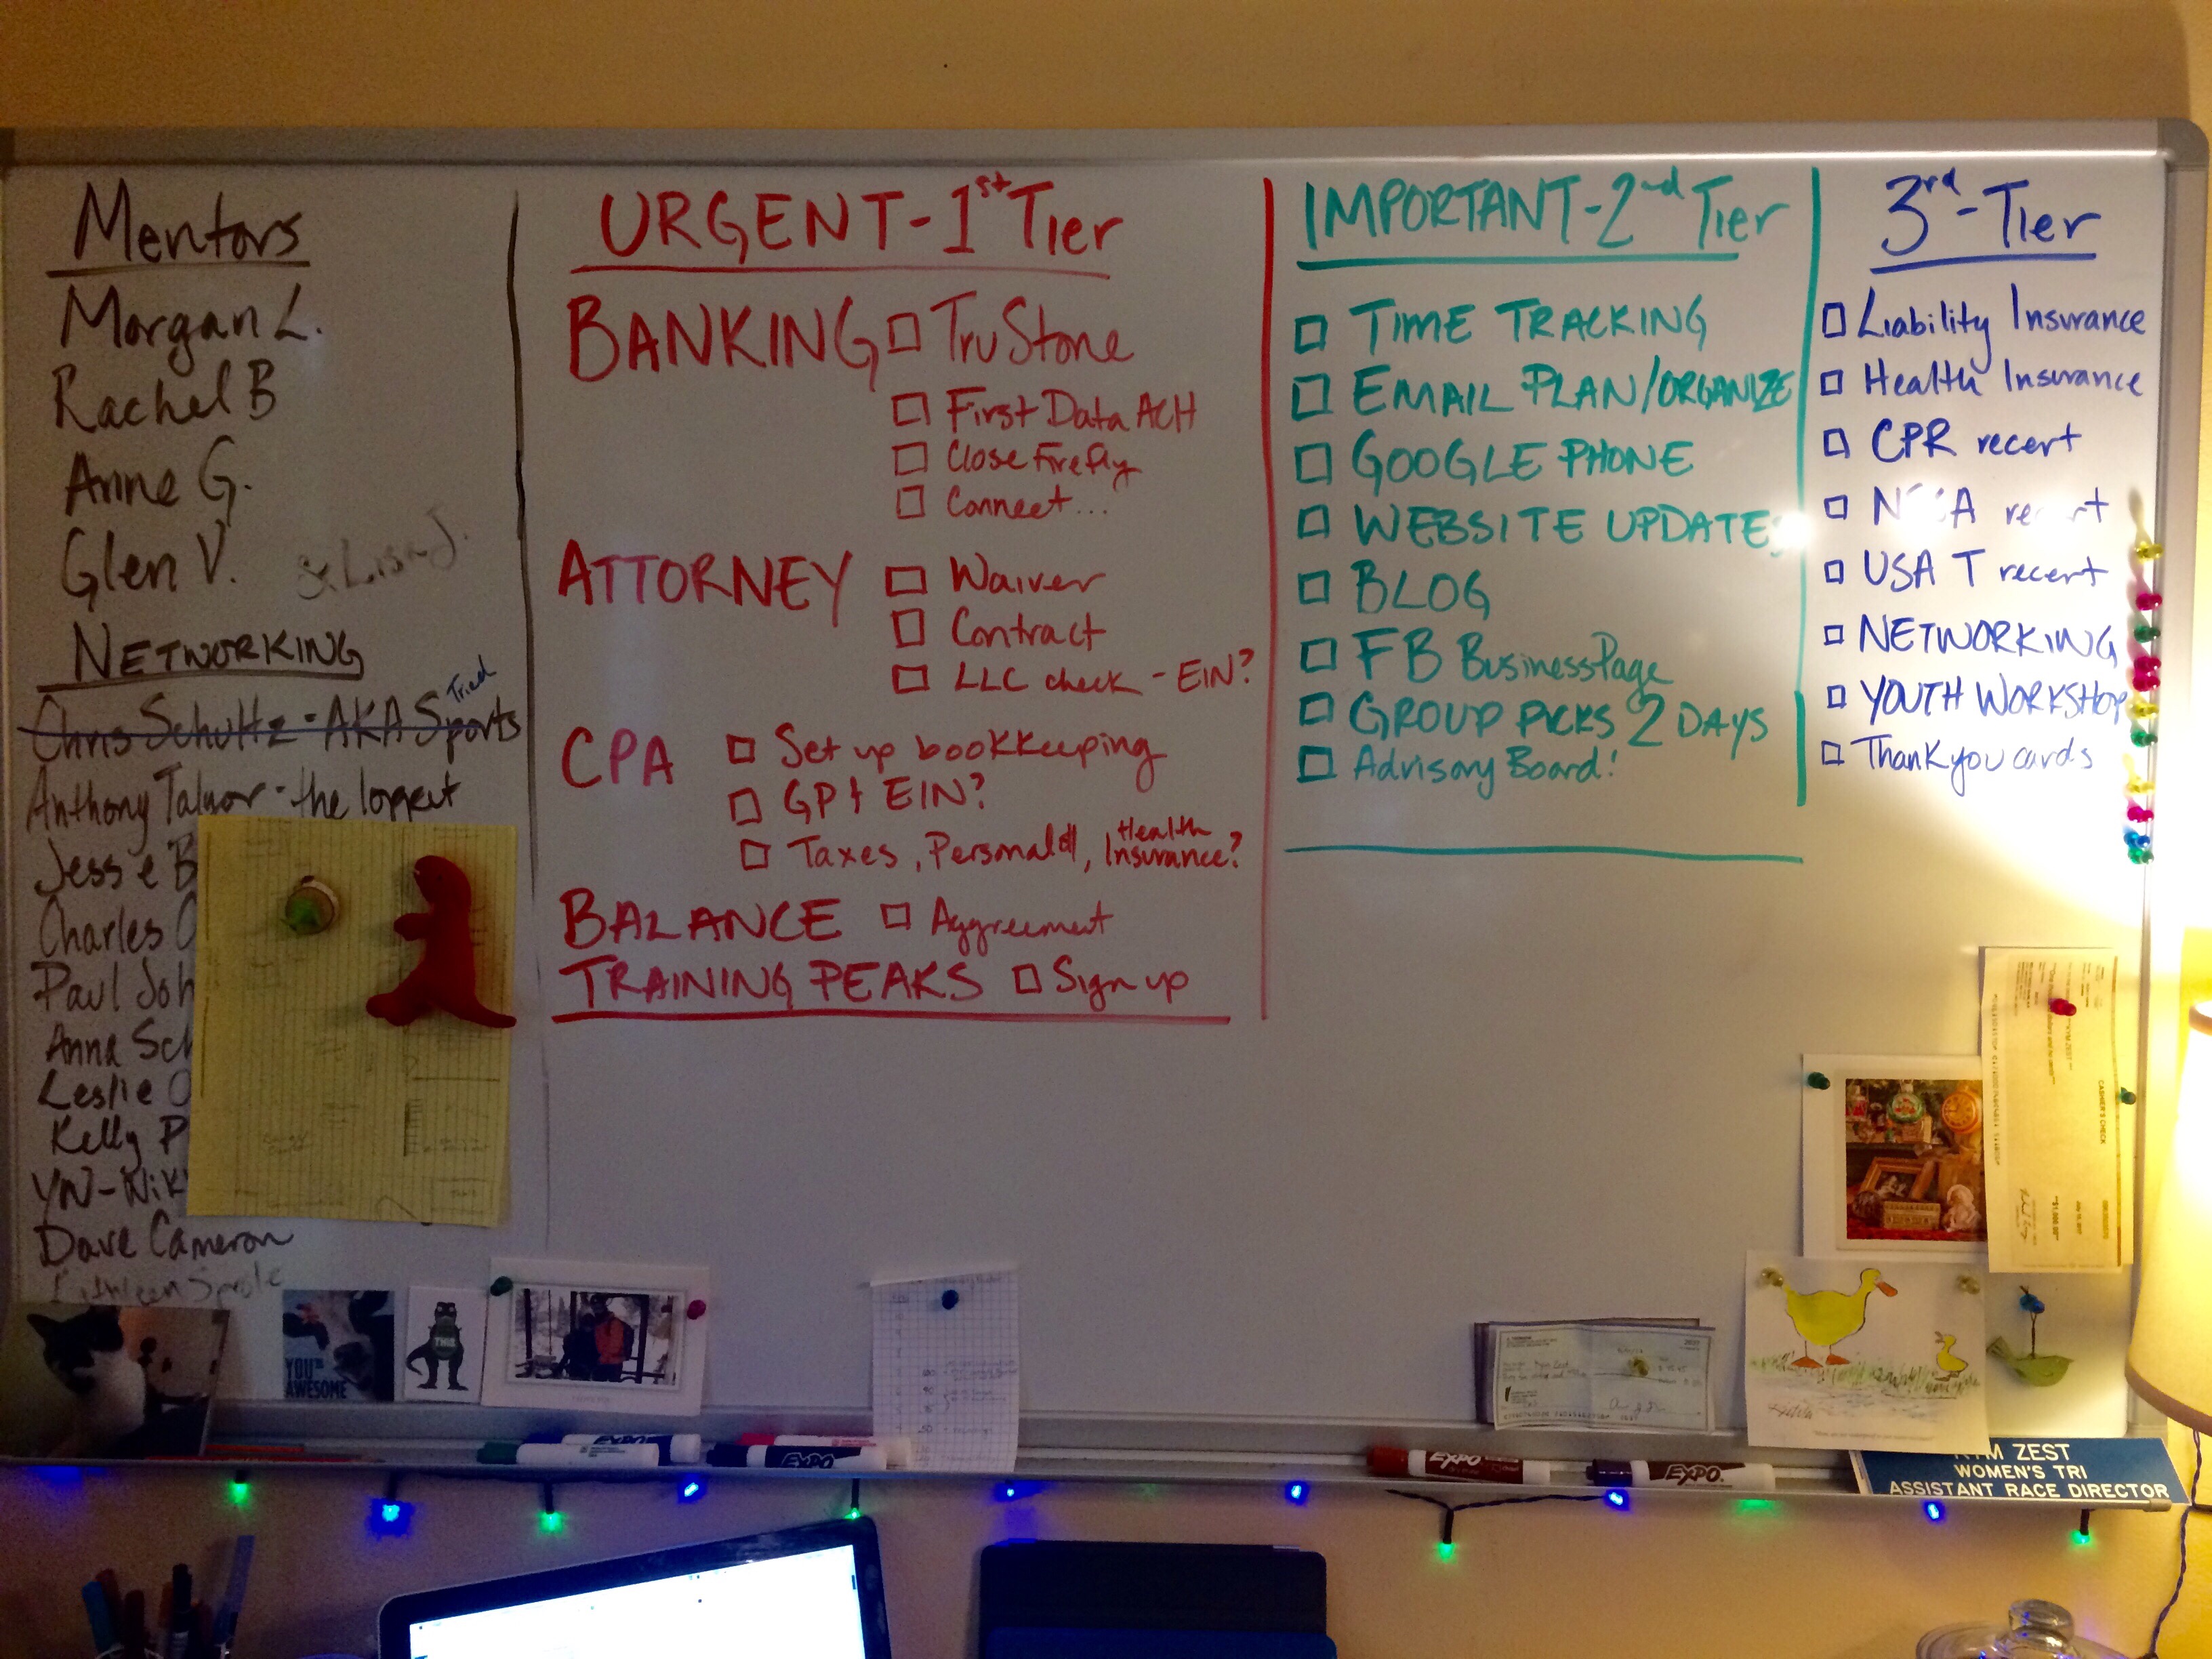 Mentors
Morgan L.
Rachel B
Anne G.
Glen V. & Lisa J.
NETWORKING
Chris Schultz - AKA Sports Tried
Anthony - the
Jessie B
Charles
Paul Joh
Anna Sch
Leslie
Kelly P
YN-Nik
Dave Cameron
Kathleen
URGENT - 1st Tier
BANKING □ TruStone
□ First Data ACH
□ Close Firefly
□ Connect...
ATTORNEY □ Waiver
□ Contract
□ LLC check - EIN?
CPA □ Set up bookkeeping
□ GP + EIN?
□ Taxes, Personal, Health Insurance?
BALANCE □ Aggreement
TRAINING PEAKS □ Sign up
IMPORTANT - 2nd Tier
□ TIME TRACKING
□ EMAIL PLAN/ORGANIZE
□ GOOGLE PHONE
□ WEBSITE UPDATES
□ BLOG
□ FB Business Page
□ GROUP PICKS 2 DAYS
□ Advisory Board!
3rd - Tier
□ Liability Insurance
□ Health Insurance
□ CPR recert
□ recert
□ USA T recert
□ NETWORKING
□ YOUTH WORKSHOP
□ Thank you cards
CASHIER'S CHECK
YOU'RE
AWESOME
THIS
EXPO
EXPO
EXPO
ZEST
WOMEN'S TRI
ASSISTANT RACE DIRECTOR